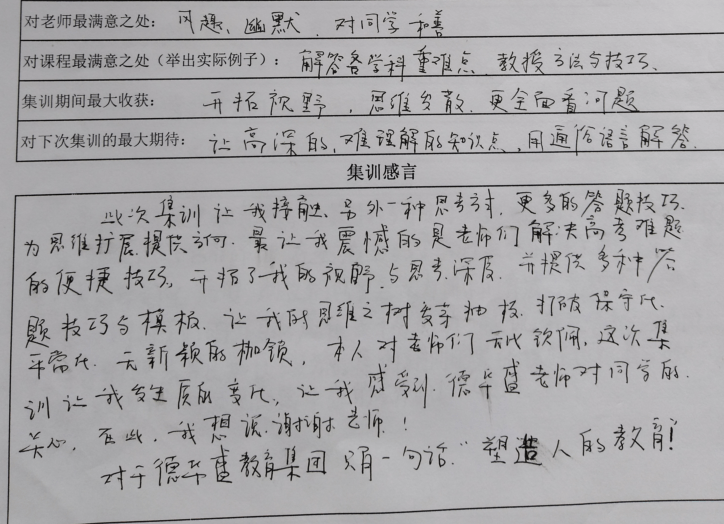 对老师最满意之处: 风趣、幽默、对同学和善
对课程最满意之处(举出实际例子): 解答各学科重难点、教授方法与技巧、
集训期间最大收获: 开拓视野,思维发散、更全面看问题
对下次集训的最大期待: 让高深的,难理解的知识点,用通俗语言解答.
集训感言
此次集训让我接触、另外一种思考方式、更多的答题技巧、
为思维扩展提供方向.最让我震憾的是老师们解决高考难题
的便捷技巧,开拓了我的视野、与思考深度、并提供多种答
题技巧与模板、让我的思维之树发芽抽枝、打破保守化、
平常化、无新颖的枷锁,本人对老师们无比钦佩,这次集
训让我发生质的变化,让我感受到.德毕盛老师对同学的.
关心,在此,我想说.谢谢老师!
对于德毕盛教育集团只有一句话."塑造人的教育!